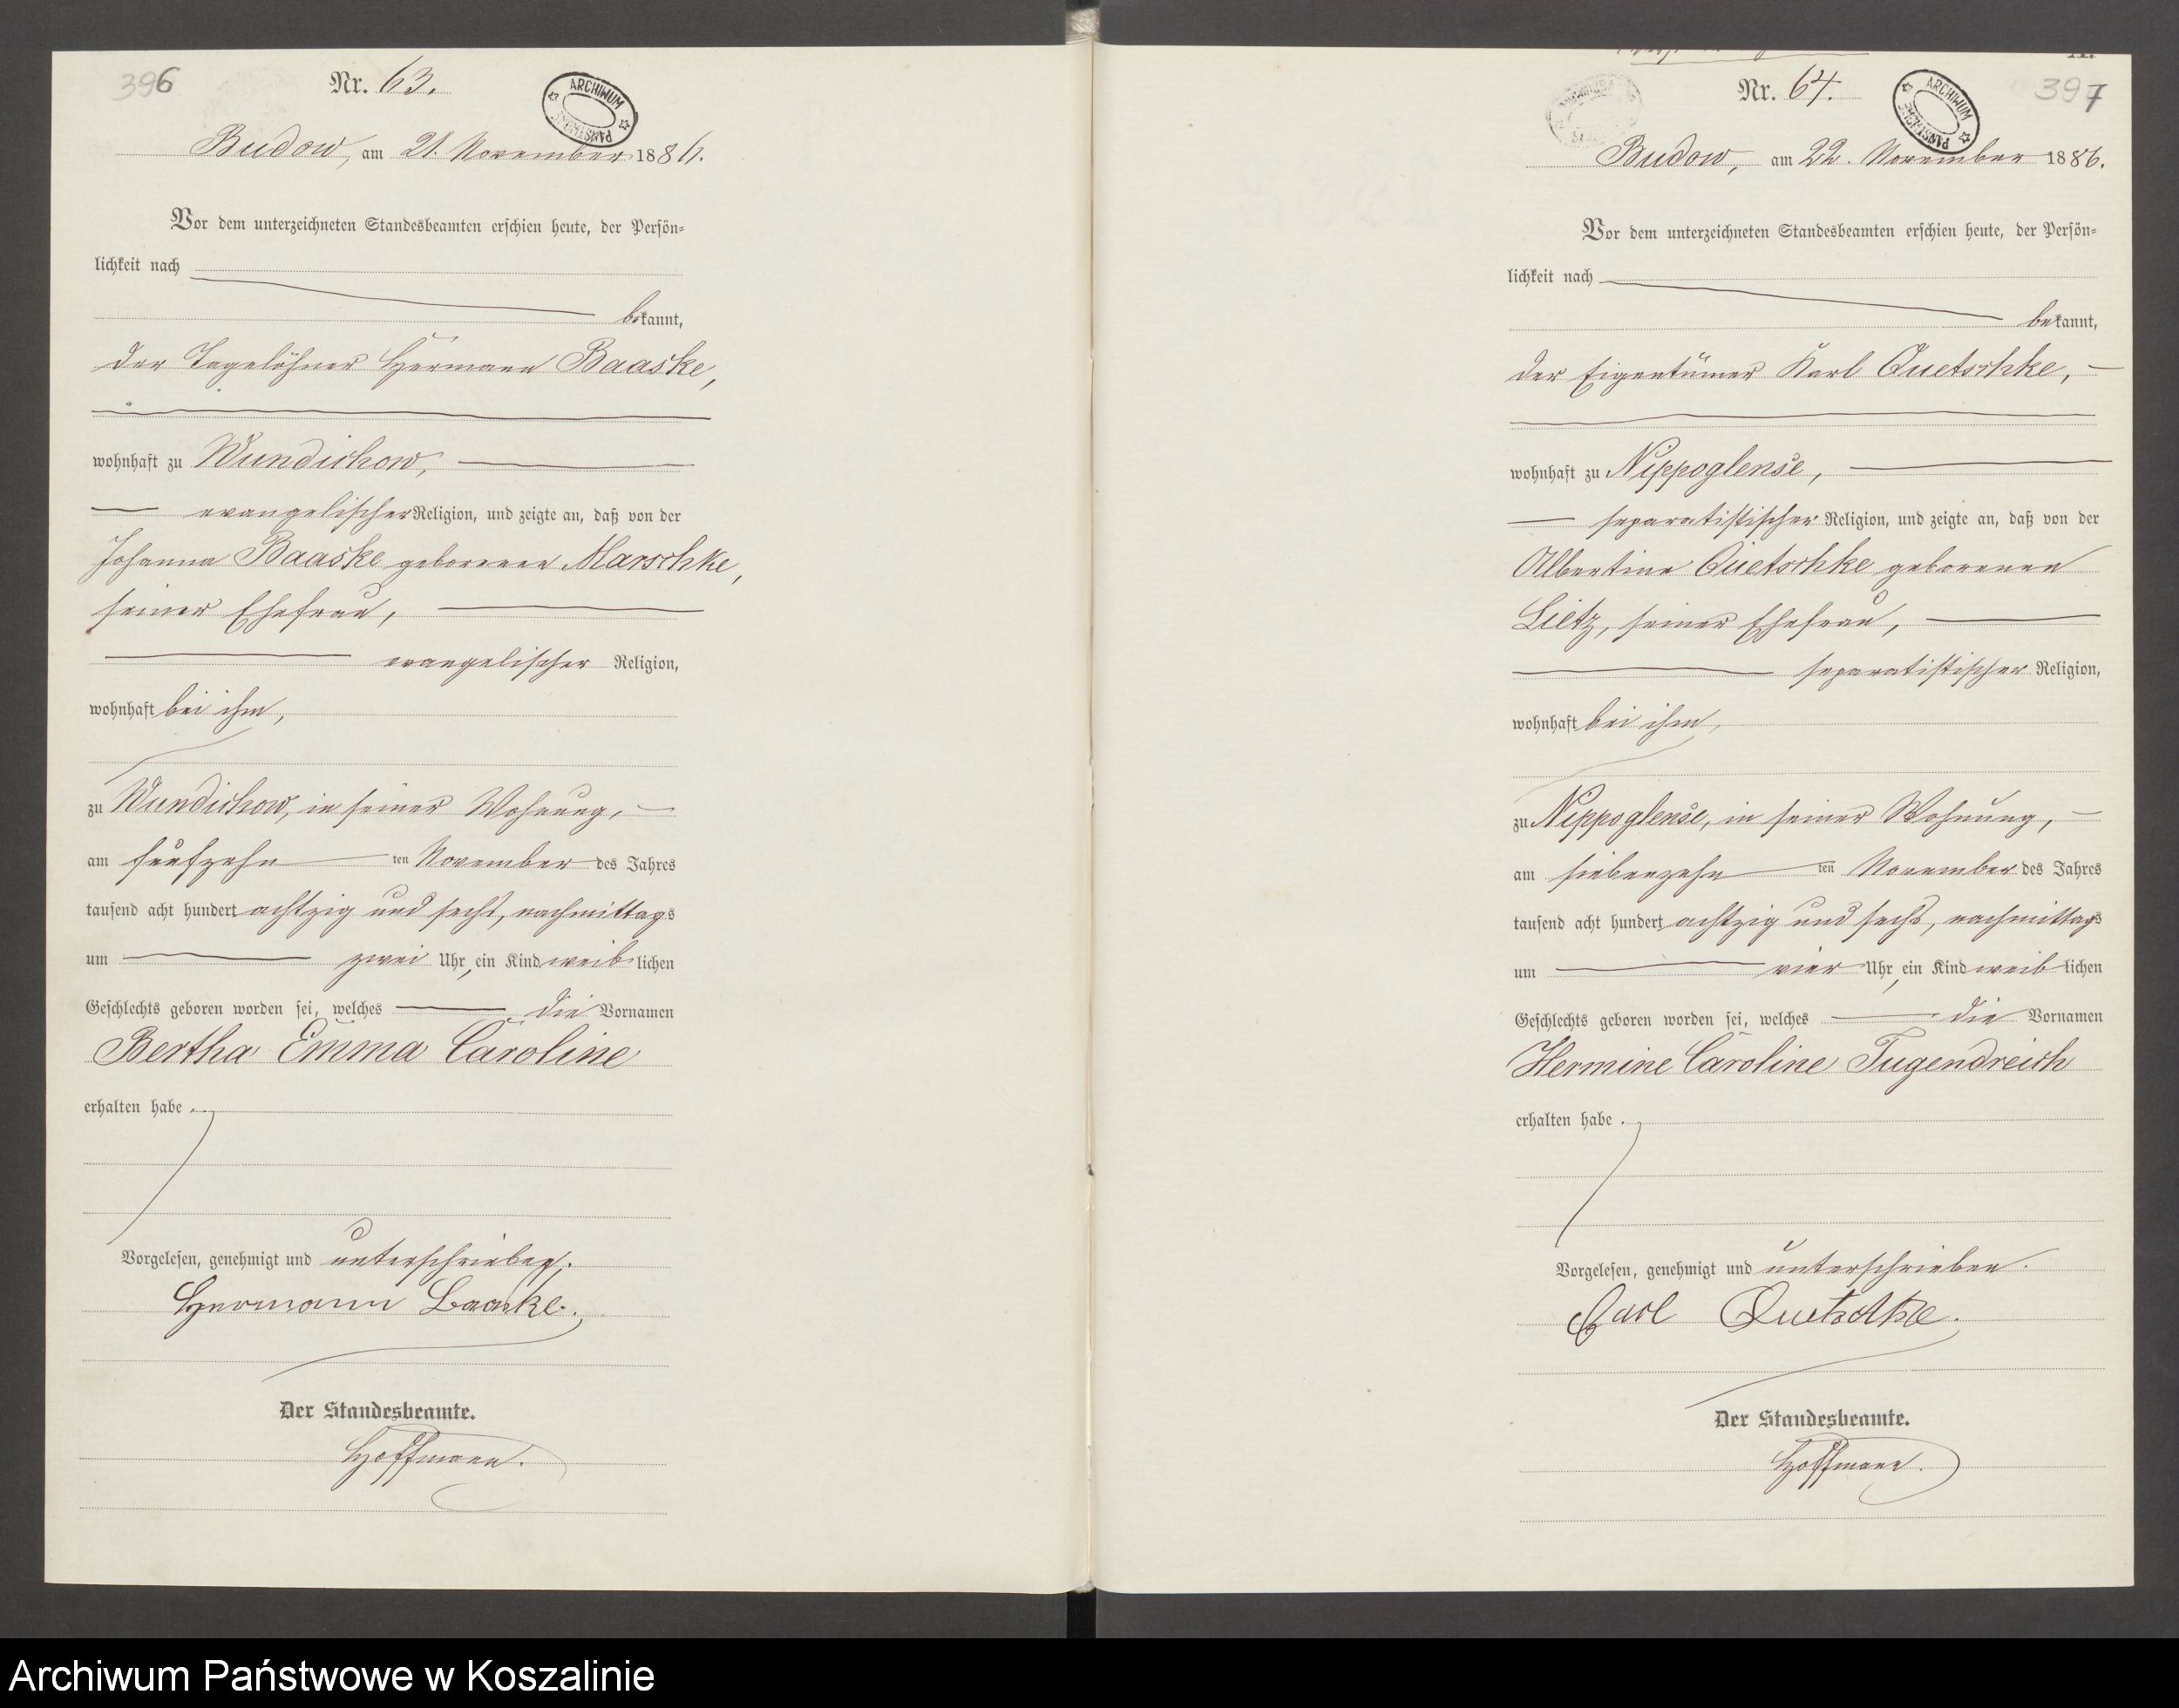 396
Nr. 63.
ARCHIWUM PAŃSTWOWE
Budow, am 21. November 1886.
Vor dem unterzeichneten Standesbeamten erschien heute, der Persön-
lichkeit nach
bekannt,
der Tagelöhner Hermann Baaske,
wohnhaft zu Wundichow,
evangelischer Religion, und zeigte an, daß von der
Johanna Baaske geborenen Marschke,
seiner Ehefrau,
evangelischer Religion,
wohnhaft bei ihm,
zu Wundichow, in seiner Wohnung,
am fünfzehn ten November des Jahres
tausend acht hundert achtzig und sechs, nachmittags
um zwei Uhr, ein Kind weiblichen
Geschlechts geboren worden sei, welches die Vornamen
Bertha Emma Caroline
erhalten habe.
Vorgelesen, genehmigt und unterschrieben.
Hermann Baaske.
Der Standesbeamte.
Hoffmann.
Nr. 64.
ARCHIWUM PAŃSTWOWE
397
Budow, am 22. November 1886.
Vor dem unterzeichneten Standesbeamten erschien heute, der Persön-
lichkeit nach
bekannt,
der Eigentümer Karl Quetschke,
wohnhaft zu Nippoglense,
separatistischer Religion, und zeigte an, daß von der
Albertine Quetschke geborenen
Lietz, seiner Ehefrau,
separatistischer Religion,
wohnhaft bei ihm,
zu Nippoglense, in seiner Wohnung,
am siebenzehn ten November des Jahres
tausend acht hundert achtzig und sechs, nachmittags
um vier Uhr, ein Kind weiblichen
Geschlechts geboren worden sei, welches die Vornamen
Hermine Caroline Tugendreich
erhalten habe.
Vorgelesen, genehmigt und unterschrieben.
Carl Quetschke.
Der Standesbeamte.
Hoffmann.
Archiwum Państwowe w Koszalinie